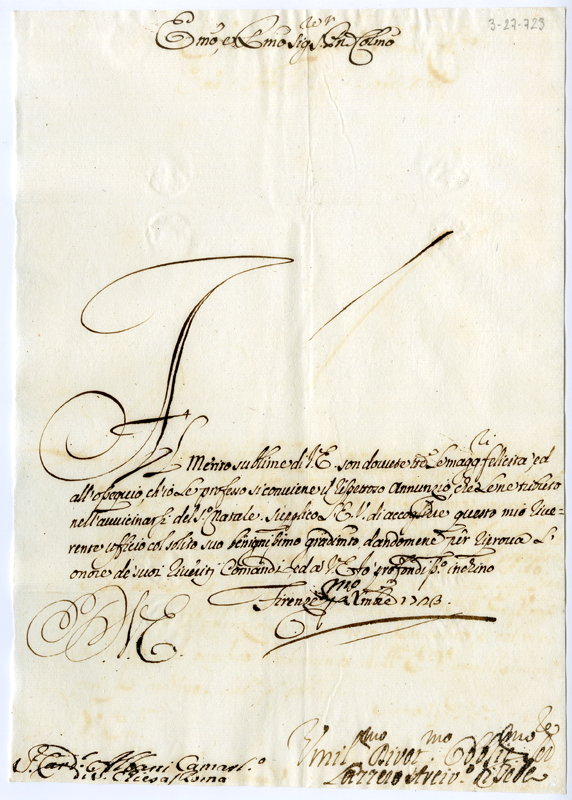 3-27-723
Em̃o, et Rm̃o Sig.r Sig.r Pron̄ Colm̃o
Il Merito sublime di V.E. son dovute tt.e le magg.ri felicità, ed
all'ossequio ch'io Le professo si conviene il vigoroso Annunzio, che Le ne
nell'avvicinarsi del S.o Natale. Supplico L'E.V. di accogliere questo mio rive=
rente ufficio col solito suo benignissimo gradim.to dandomene per riprova L'
onore de suoi riveriti Comandi, ed a V.E. fo profondiss.o inchino
Firenze Xmbre 1723.
V.E.
S.r Card.l Albani Camarl.o
di S. Chiesa Roma
Umil.mo Divot.mo Obblig.mo Ser.re